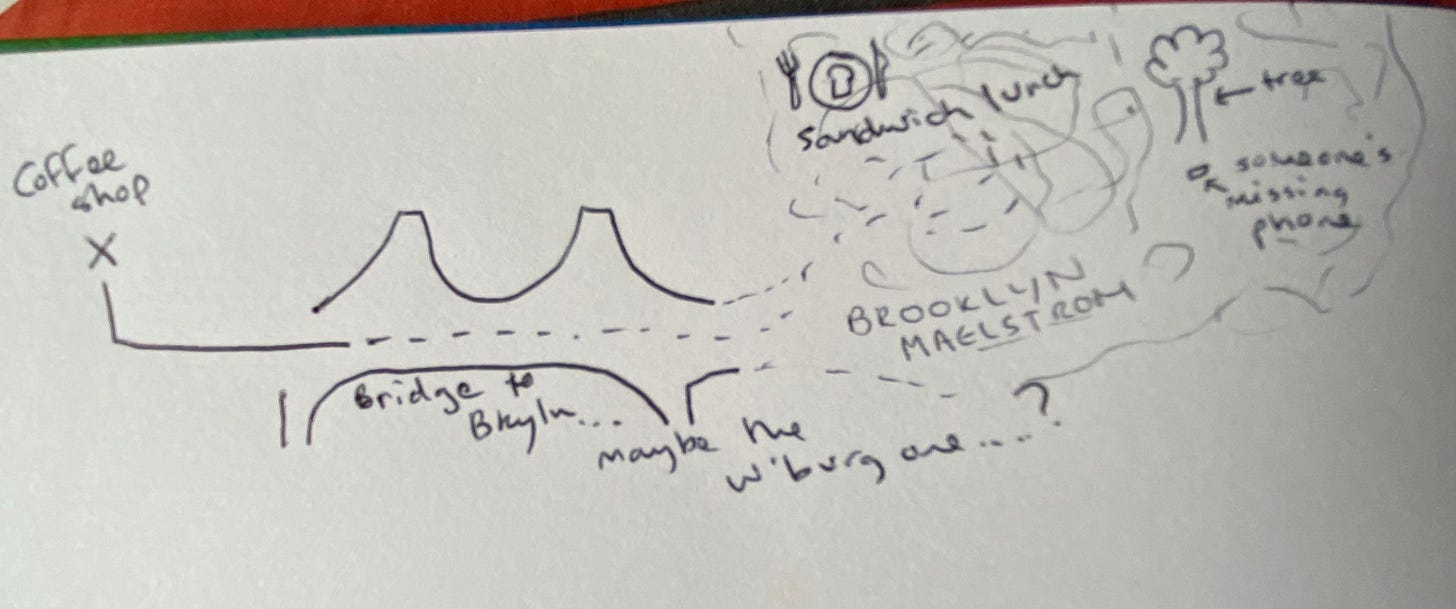 Coffee
shop
X
sandwich lunch
← tree
someone's
missing
phone
BROOKLYN
MAELSTROM
Bridge to
Bkyln...
maybe the
w'burg one....?